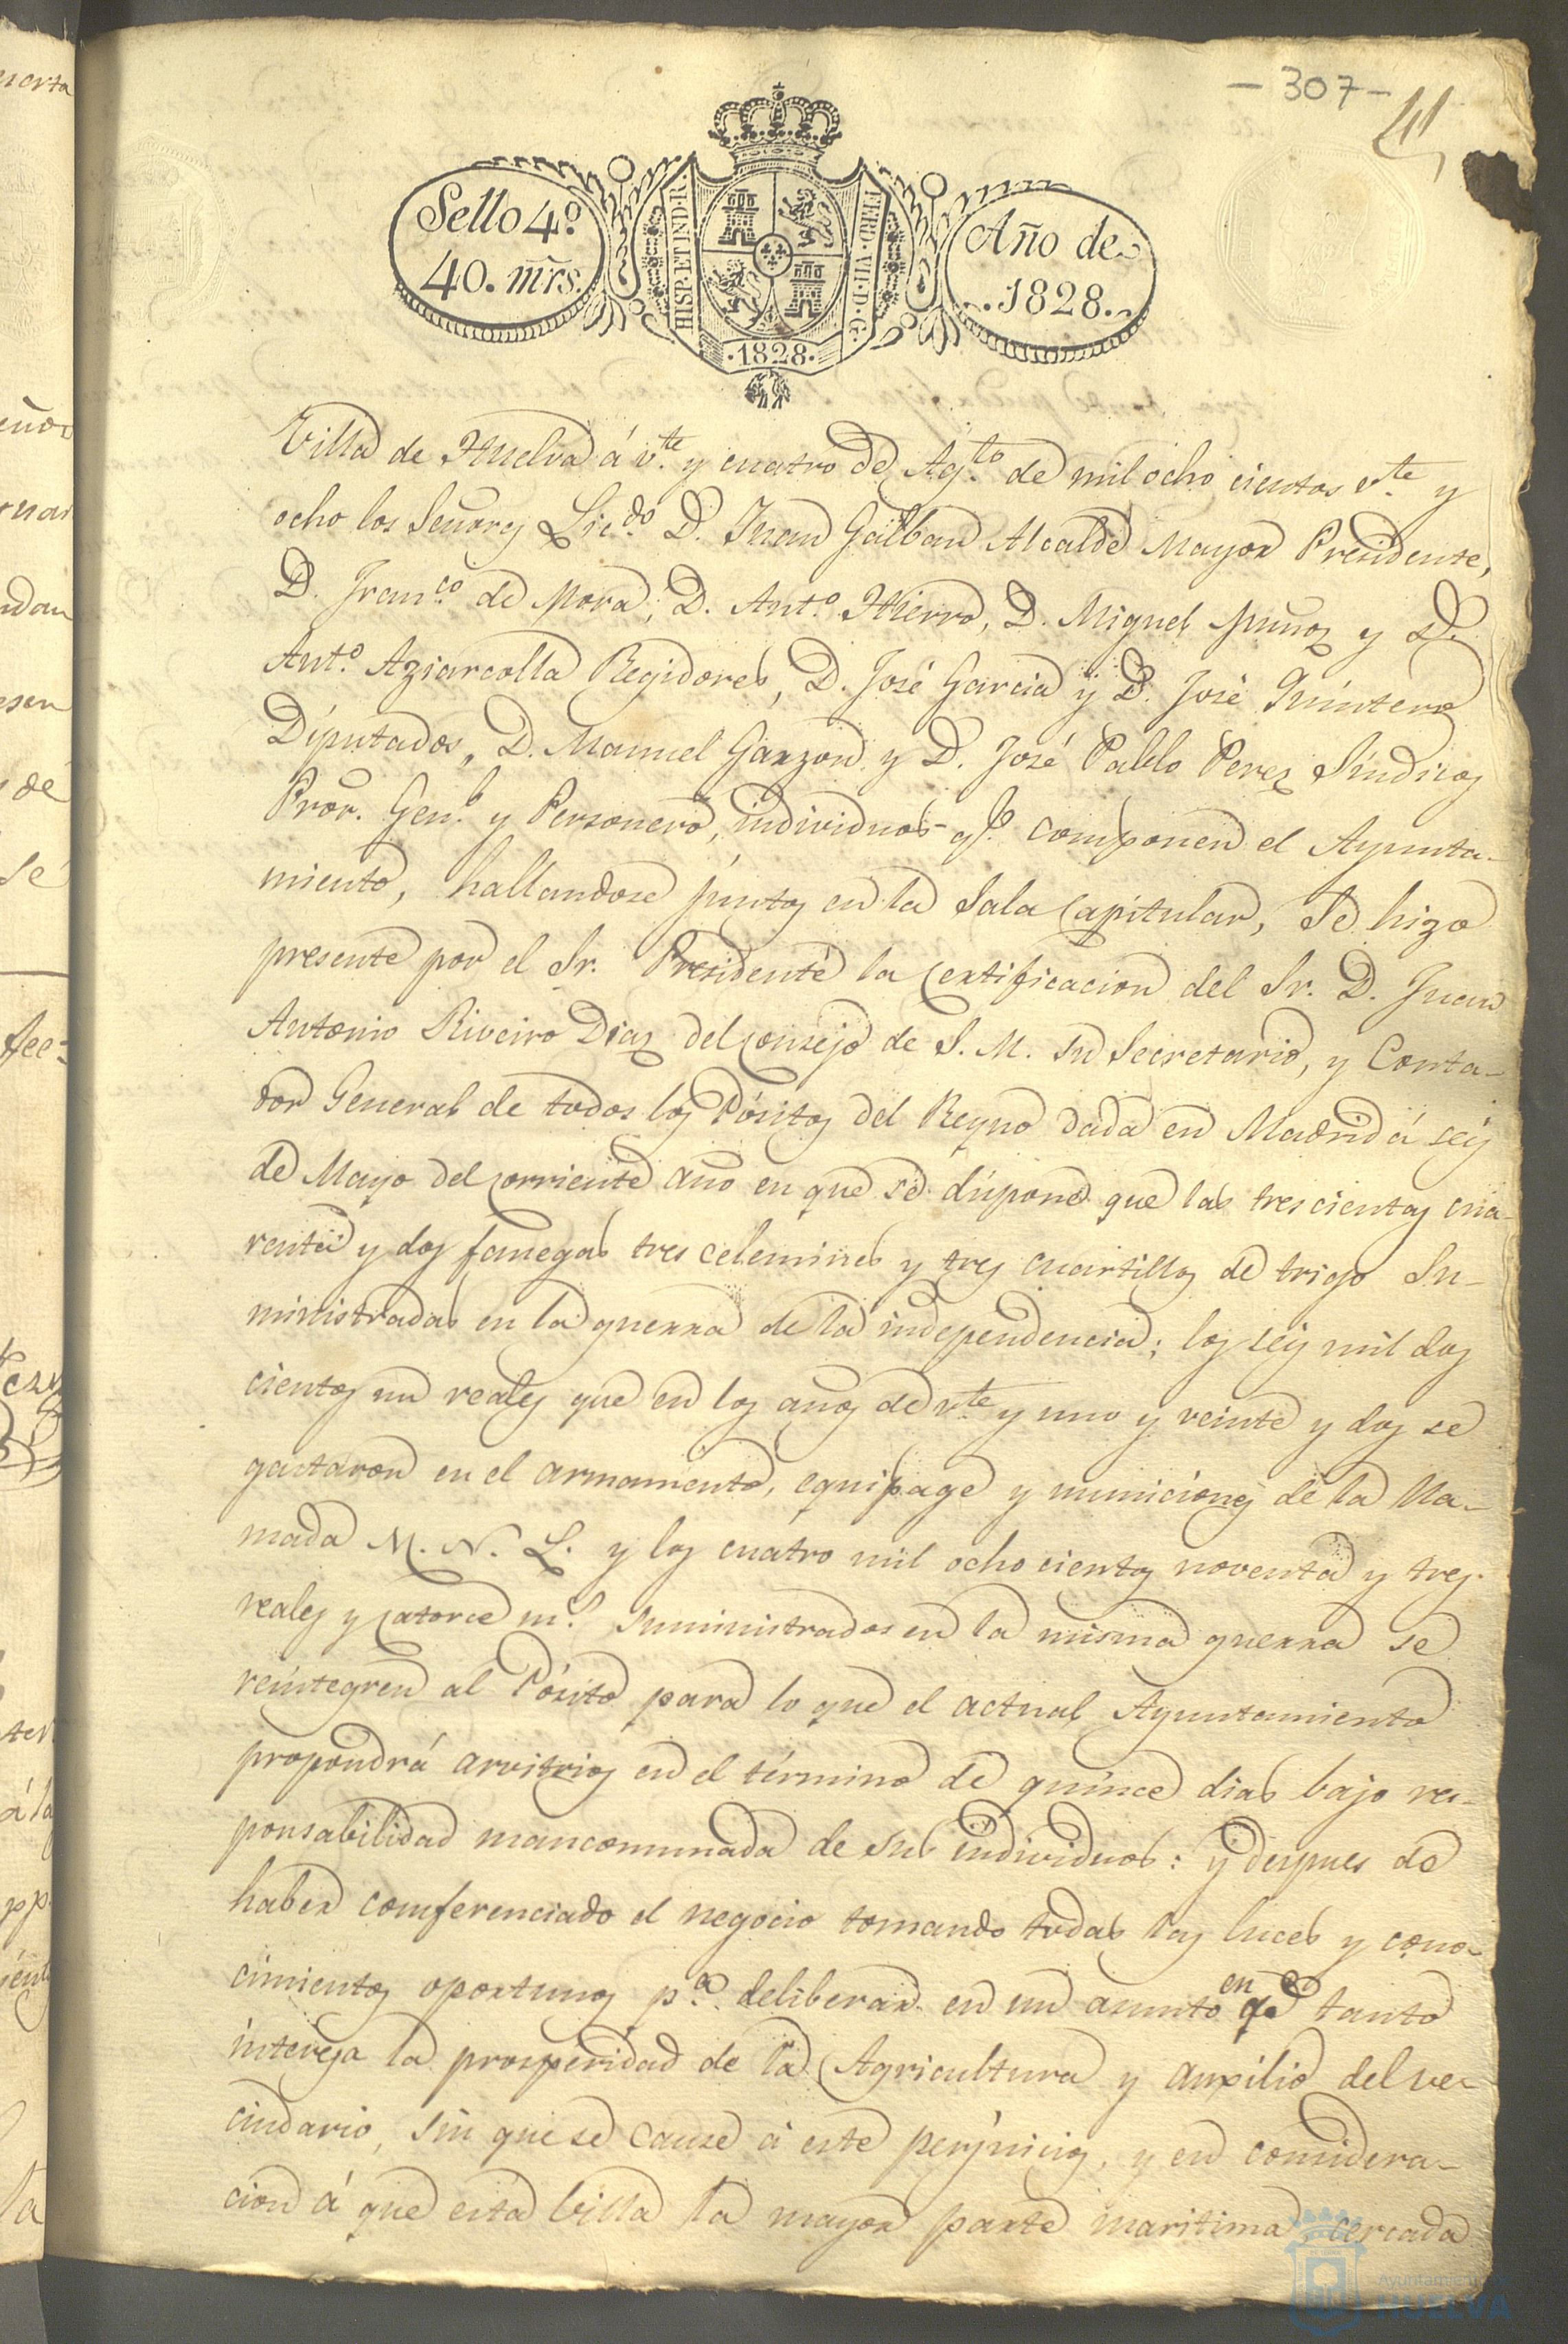 - 307 -
41
Sello 4º
40. mrs.
HISP. ET IND. R.
FERD. VII. D. G.
·1828·
Año de
1828.
Villa de Huelva á v.te y cuatro de Ag.to de mil ocho cientos v.te y
ocho los Señores Lic.do D. Juan Galban Alcalde Mayor Presidente,
D. Fran.co de Mora, D. Ant.o Hierro, D. Miguel Muñoz y D.
Ant.o Aziarcolla Regidores, D. José Garcia y D. José Quintero
Diputados, D. Manuel Garzon y D. José Pablo Perez Síndicos
Pror. Gen.l y Personero, individuos q.e componen el Ayunta-
miento, hallandose juntos en la Sala Capitular, Se hizo
presente por el Sr. Presidente la Certificacion del Sr. D. Juan
Antonio Riveiro Diaz del Consejo de S. M. su Secretario, y Conta-
dor General de todos los Pósitos del Reyno dada en Madrid á seis
de Mayo del Corriente año en que se dispone que las trescientas cua-
renta y dos fanegas tres celemines y tres cuartillos de trigo Su-
ministradas en la guerra de la independencia; los seis mil dos
cientos un reales que en los años de v.te y uno y veinte y dos se
gastaron en el armamento, equipage y municiones de la lla-
mada M. N. L. y los cuatro mil ocho cientos noventa y tres
reales y Catorce m.s Suministrados en la misma guerra se
reintegren al Pósito para lo que el actual Ayuntamiento
propondrá arvitrios en el término de quince dias bajo res-
ponsabilidad mancomunada de sus individuos: y despues de
haber comferenciado el negocio tomando todas las luces y cono-
cimientos oportunos p.a deliberar en un asunto en q.e tanto
interesa la prosperidad de la Agricultura y auxilio del ve-
cindario, sin que se cause á este perjuicios, y en considera-
cion á que esta Villa la mayor parte maritima, cercada
Ayuntamiento
HUELVA